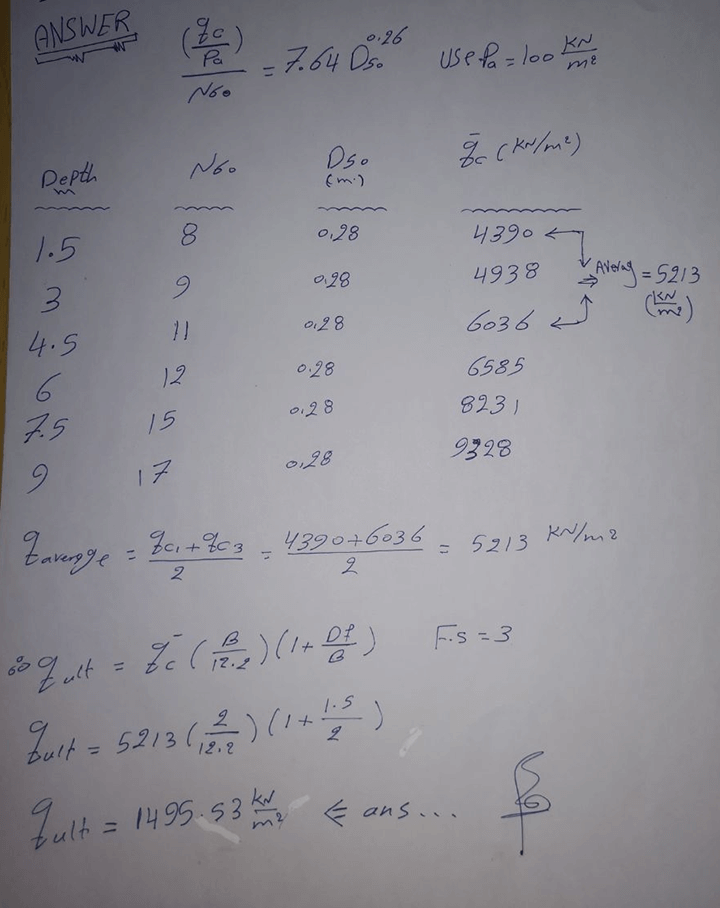 ANSWER
(qc/Pa)/N60 = 7.64 D50^0.26 USE Pa = 100 KN/m²
Depth m N60 D50 (m.) q̄c (KN/m²)
1.5 8 0.28 4390
3 9 0.28 4938 ⇒ Averag = 5213 (KN/m²)
4.5 11 0.28 6036
6 12 0.28 6585
7.5 15 0.28 8231
9 17 0.28 9328
q average = (qc1 + qc3)/2 = (4390+6036)/2 = 5213 KN/m²
∴ qult = q̄c (B/12.2)(1 + Df/B) F.S = 3
qult = 5213 (2/12.2)(1 + 1.5/2)
qult = 1495.53 KN/m² ⇐ ans...